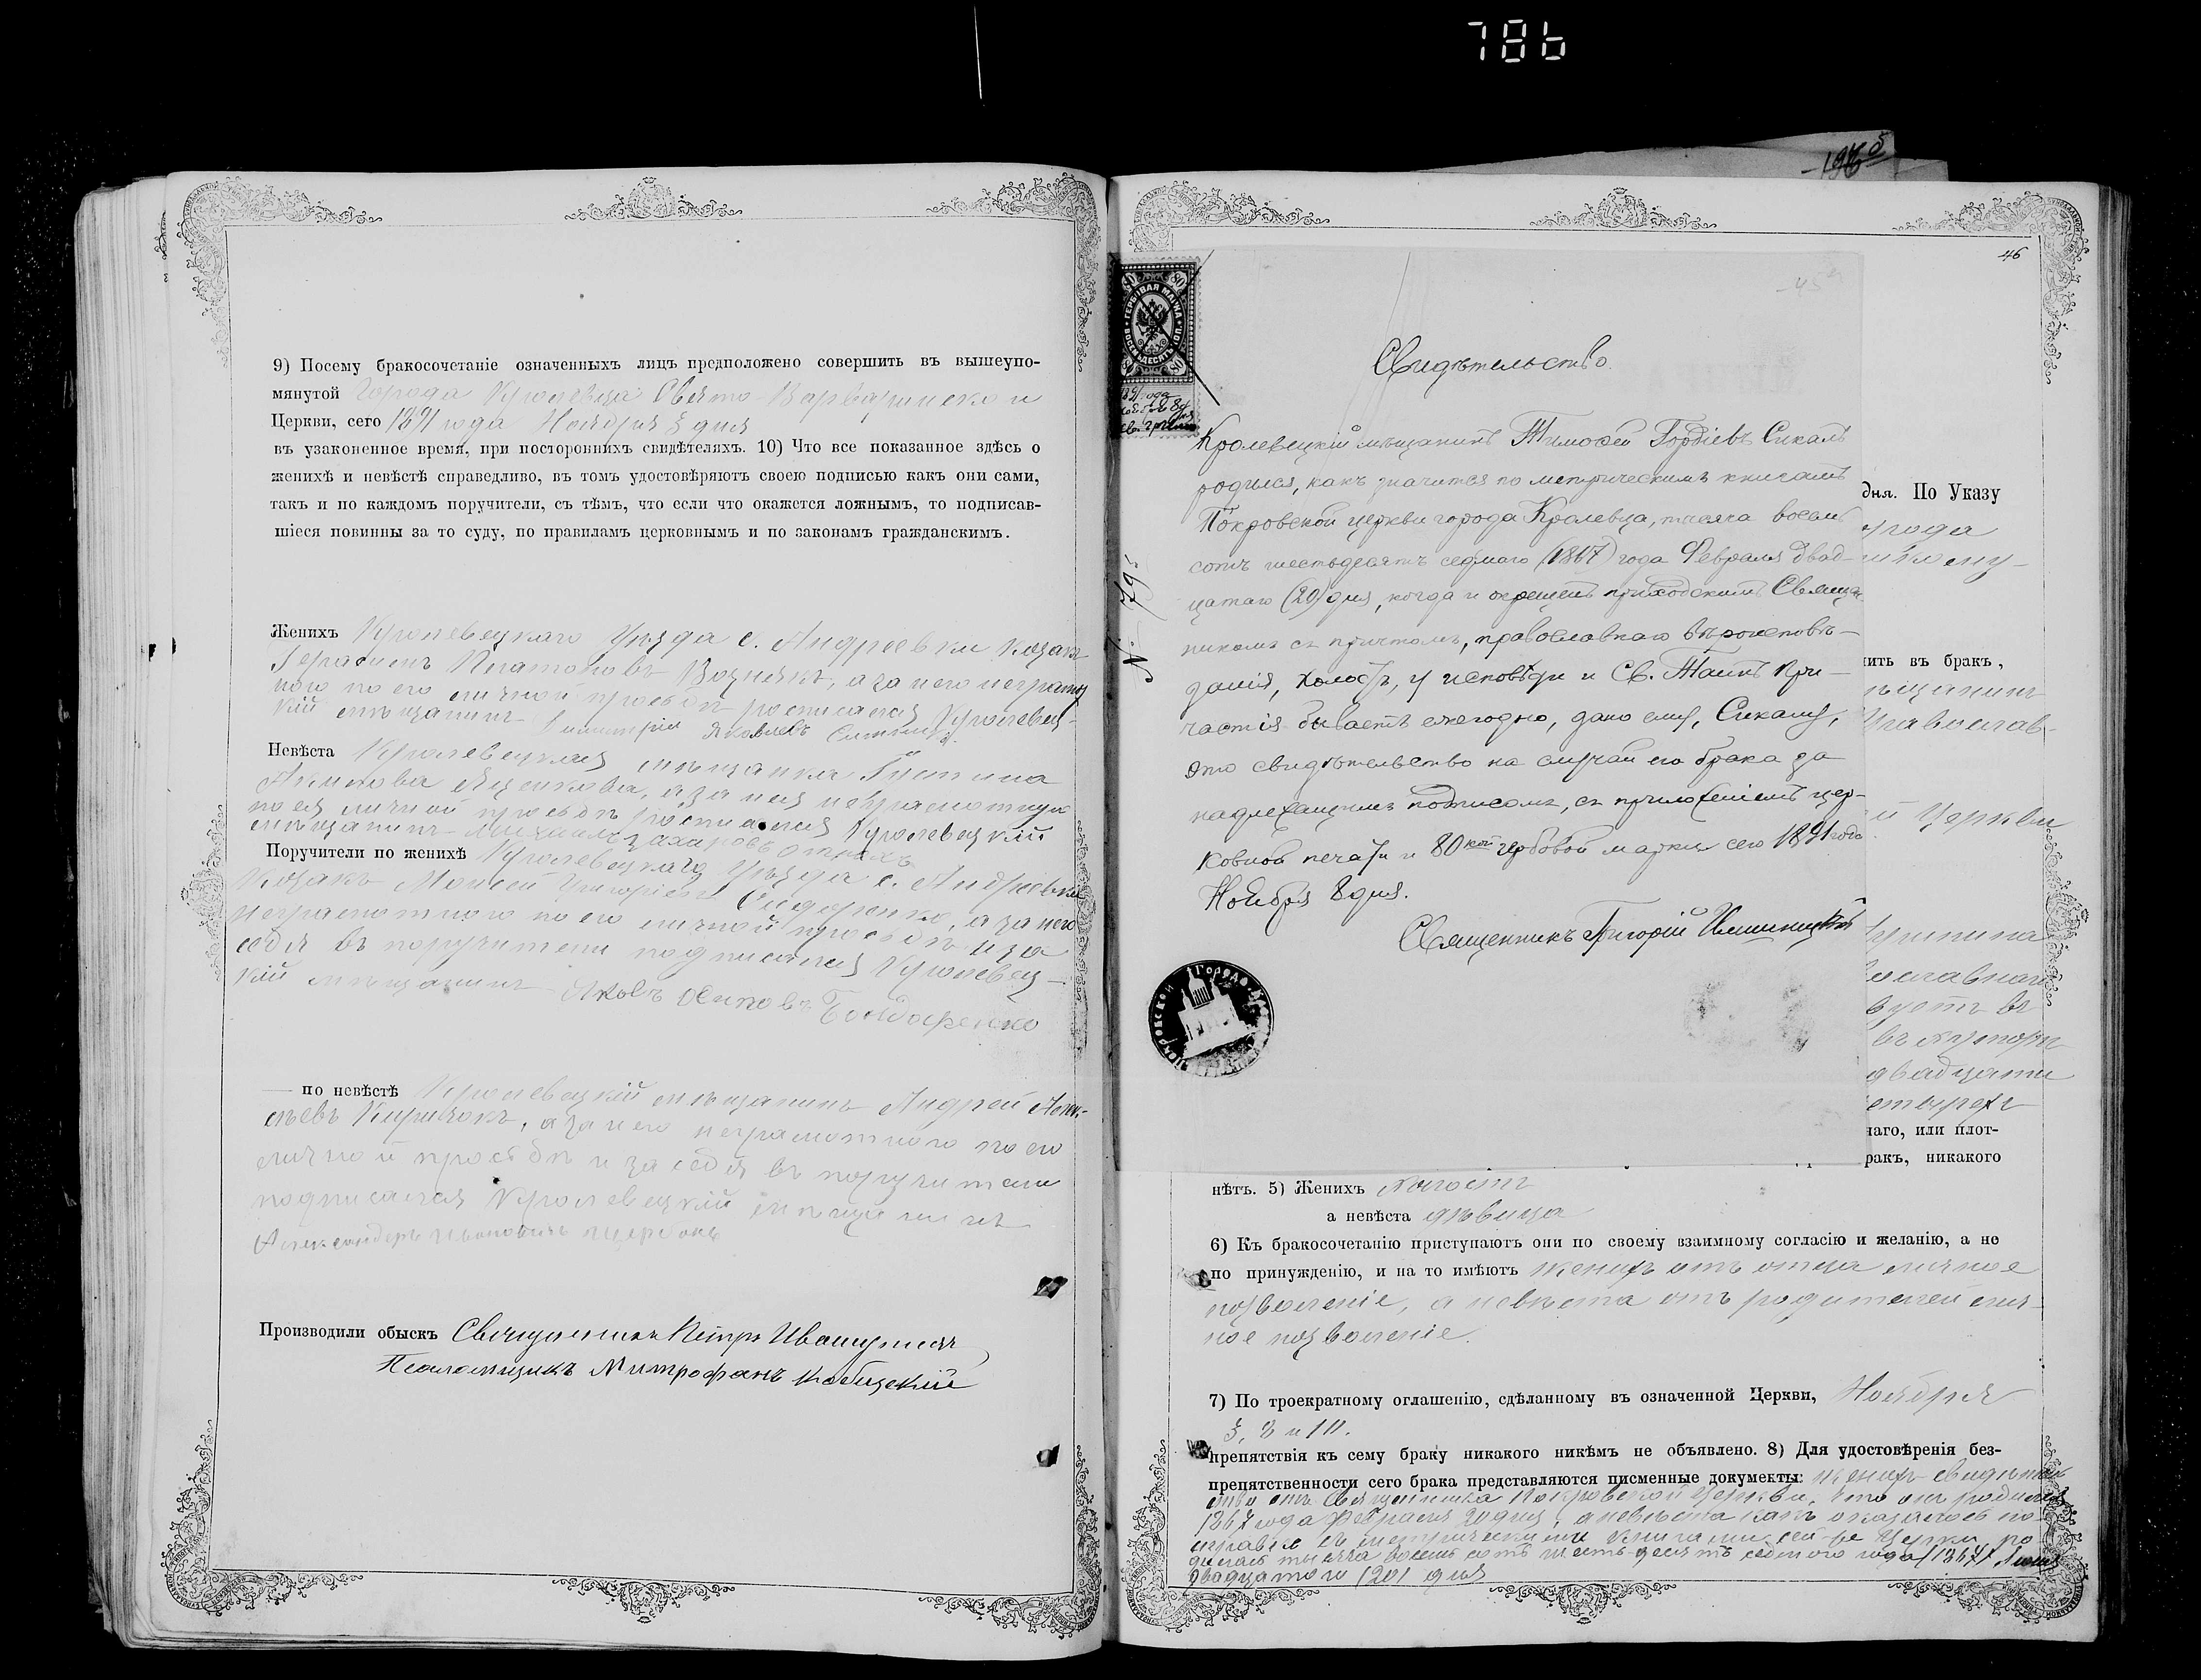 786
9) Посему бракосочетаніе означенныхъ лицъ предположено совершить въ вышеупо-
мянутой Города Кролевца Свято-Варваринской
Церкви, сего 1891 года Ноября дня
въ узаконенное время, при постороннихъ свидѣтеляхъ. 10) Что все показанное здѣсь о
женихѣ и невѣстѣ справедливо, въ томъ удостовѣряютъ своею подписью какъ они сами,
такъ и по каждомъ поручители, съ тѣмъ, что если что окажется ложнымъ, то подписав-
шіеся повинны за то суду, по правиламъ церковнымъ и по законамъ гражданскимъ.
Женихъ Кролевецкаго Уѣзда с. Андреевки козакъ
Герасимъ Платоновъ а за него неграмот
ного по его личной просьбѣ росписался Кролевец-
кій мѣщанинъ Димитрій Яковлевъ
Невѣста Кролевецкая мѣщанка Іустина
Акимова Яценкова, а за нея неграмотную
по ея личной просьбѣ росписался Кролевецкій
мѣщанинъ Михаилъ Захаровъ
Поручители по женихѣ Кролевецкаго Уѣзда с. Андреевки
Козакъ Моисей Григоріевъ Сидоренко, а за него
неграмотного по его личной просьбѣ и за
себя въ поручители подписался Кролевец-
кій мѣщанинъ Яковъ Осиповъ Бондаренко
— по невѣстѣ Кролевецкій мѣщанинъ Андрей Алек-
сѣевъ а за него неграмотного по его
личной просьбѣ и за себя въ поручители
подписался Кролевецкій мѣщанинъ
Александръ Ивановичъ Щербакъ
Производили обыскъ Священникъ Петръ
Псаломщикъ Митрофанъ
46
ГЕРБОВАЯ МАРКА
80
Свидѣтельство.
Кролевецкій мѣщанинъ Тимофей Гордіевъ Сикалъ
родился, какъ значится по метрическимъ книгамъ
Покровской церкви города Кролевца, тысяча восемь
сотъ шестьдесятъ седмаго (1867) года Февраля двад-
цатаго (20) дня, когда и окрещенъ приходскимъ Священ
никомъ съ причтомъ, православнаго вѣроисповѣ-
данія, холостъ, у исповѣди и Св. Таинъ При-
частія бываетъ ежегодно, дано ему, Сикалу,
это свидѣтельство на случай его брака за
надлежащимъ подписомъ, съ приложеніемъ цер-
ковной печати и 80 коп гербовой марки сего 1891 года
Ноября 8 дня.
Священникъ Григорій
№ 795
дня. По Указу
города
ить въ бракъ,
мѣщанинъ
Православ-
й Церкви
славнаго
вуетъ въ
двадцати
четырехъ
наго, или плот-
ракъ, никакого
нѣтъ. 5) Женихъ холостъ
а невѣста дѣвица
6) Къ бракосочетанію приступаютъ они по своему взаимному согласію и желанію, а не
по принужденію, и на то имѣютъ женихъ отъ отца личное
позволеніе, а невѣста отъ родителей лич-
ное позволеніе.
7) По троекратному оглашенію, сдѣланному въ означенной Церкви, Ноября
препятствія къ сему браку никакого никѣмъ не объявлено. 8) Для удостовѣренія без-
препятственности сего брака представляются писменные документы: женихъ свидѣтель
ство отъ Священника Покровской Церкви, что онъ родился
1867 года Февраля 20 дня, а невѣста какъ оказалось по
справкѣ съ метрическими книгами сей-же Церкви ро
дилась тысяча восемь сотъ шестьдесятъ седмого года (1867)
двадцатого (20) дня